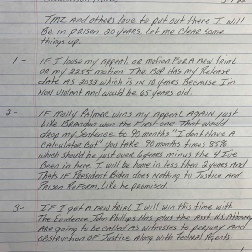 TMZ and others love to put out there I will
Be in prison 20 years. Let me clear some
things up.
1- IF I lose my appeal or motion for a new trial
or my 2255 motion. The BOP has my release
date as 2037 which is in 18 years because I'm
Not violent and would be 65 years old.
2- IF Molly Palmer wins my appeal again just
like Brandon won the first one. That would
drop my sentence to 90 months "I don't have a
calculator But" you take 90 months times 85%
what should be just over 6 years minus the 4 I've
Been in here I will be home in less than 2 years and
thats if President Biden does nothing to Justice and
Prison Reform like he promised.
3- IF I get a new trial I will win this time with
The evidence John Phillips has plus the Asst. US Attorneys
are going to be called as witnesses to perjury and
obstruction of Justice along with Federal Agents